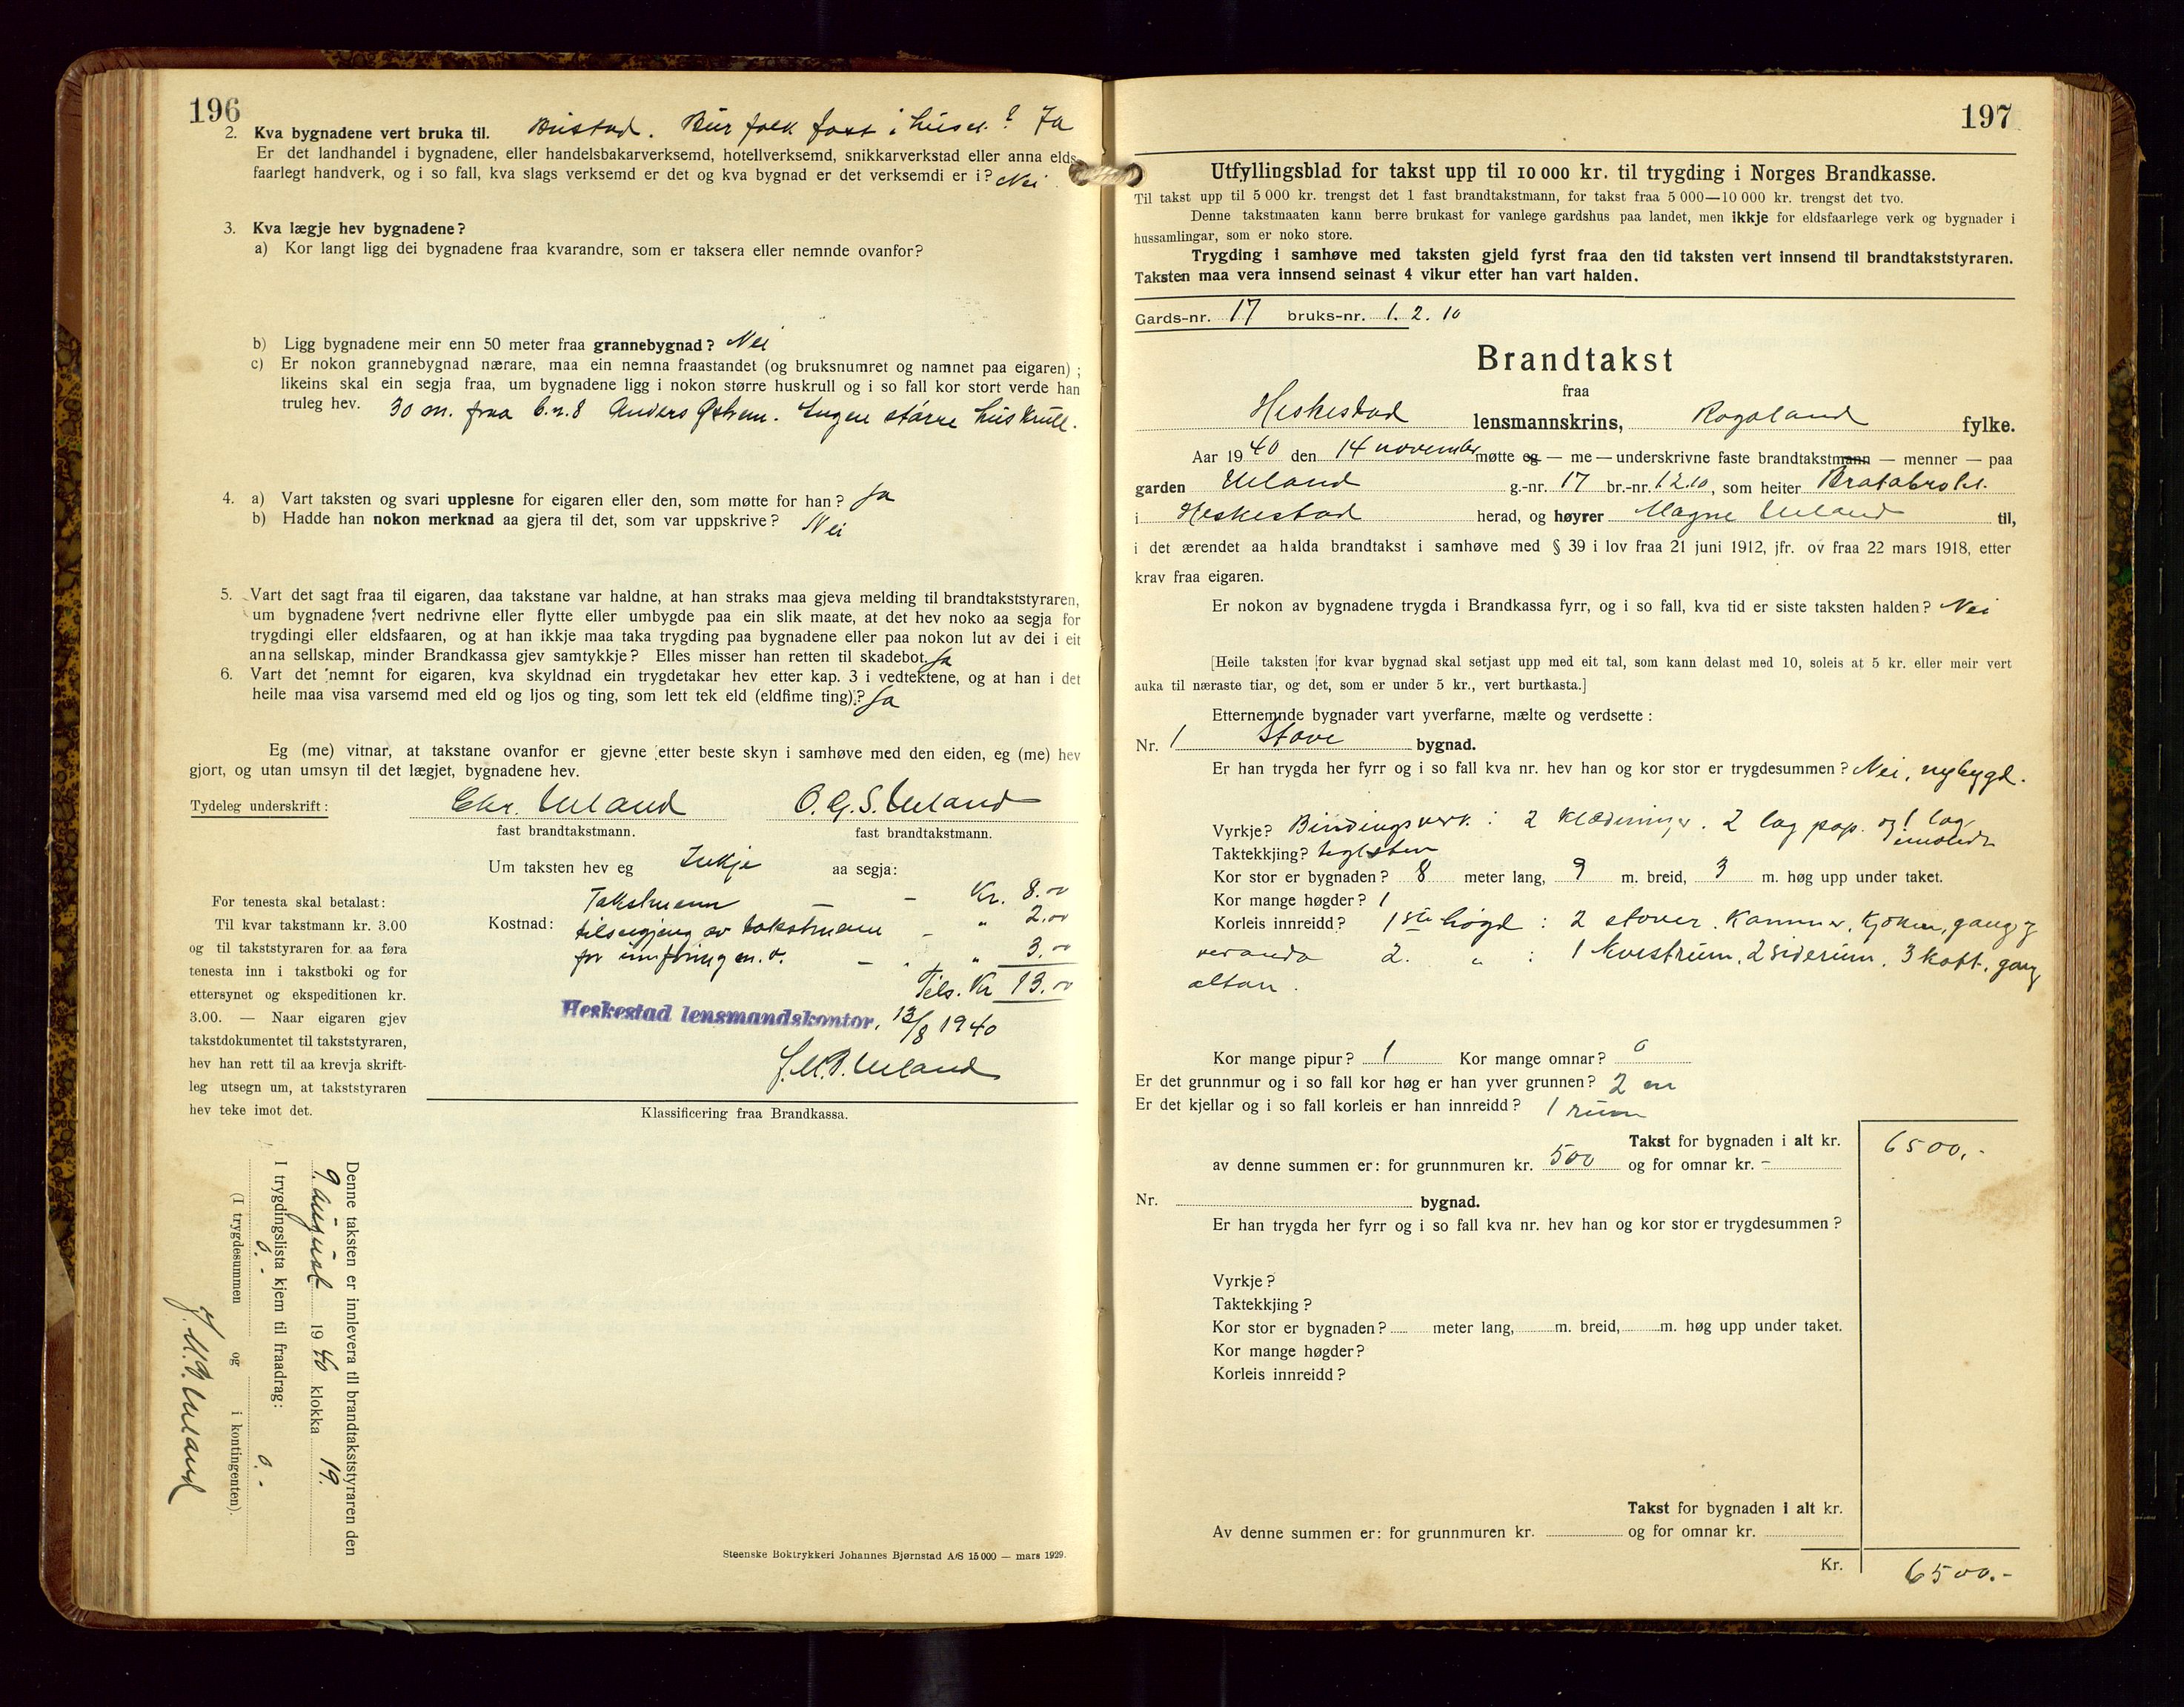 196
2. Kva bygnadene vert bruka til. Bustad. Bur folk fast i huset? Ja
Er det landhandel i bygnadene, eller handelsbakarverksemd, hotellverksemd, snikkarverkstad eller anna elds-
faarlegt handverk, og i so fall, kva slags verksemd er det og kva bygnad er det verksemdi er i? Nei
3. Kva lægje hev bygnadene?
a) Kor langt ligg dei bygnadene fraa kvarandre, som er taksera eller nemnde ovanfor?
b) Ligg bygnadene meir enn 50 meter fraa grannebygnad? Nei
c) Er nokon grannebygnad nærare, maa ein nemna fraastandet (og bruksnumret og namnet paa eigaren);
likeins skal ein segja fraa, um bygnadene ligg i nokon større huskrull og i so fall kor stort verde han
truleg hev. 30 m. fraa b.n. 8 Anders Østrem. Ingen større huskrull.
4. a) Vart taksten og svari upplesne for eigaren eller den, som møtte for han? Ja
b) Hadde han nokon merknad aa gjera til det, som var uppskrive? Nei
5. Vart det sagt fraa til eigaren, daa takstane var haldne, at han straks maa gjeva melding til brandtakststyraren,
um bygnadene vert nedrivne eller flytte eller umbygde paa ein slik maate, at det hev noko aa segja for
trygdingi eller eldsfaaren, og at han ikkje maa taka trygding paa bygnadene eller paa nokon lut av dei i eit
anna sellskap, minder Brandkassa gjev samtykkje? Elles misser han retten til skadebot. Ja
6. Vart det nemnt for eigaren, kva skyldnad ein trygdetakar hev etter kap. 3 i vedtektene, og at han i det
heile maa visa varsemd med eld og ljos og ting, som lett tek eld (eldfime ting)? Ja
Eg (me) vitnar, at takstane ovanfor er gjevne etter beste skyn i samhøve med den eiden, eg (me) hev
gjort, og utan umsyn til det lægjet, bygnadene hev.
Tydeleg underskrift: Chr. Ueland O. G. S. Ueland
fast brandtakstmann. fast brandtakstmann.
Um taksten hev eg Inkje aa segja:
Kostnad: Takstmenn — - Kr. 8.00
tilsegjing av takstmenn - " 2.00
for innføring m.v. - " 3.00
Tils. Kr 13.00
Heskestad lensmandskontor, 13/8 1940
J. M. P. Ueland
Klassificering fraa Brandkassa.
For tenesta skal betalast:
Til kvar takstmann kr. 3.00
og til takststyraren for aa føra
tenesta inn i takstboki og for
ettersynet og ekspeditionen kr.
3.00. — Naar eigaren gjev
takstdokumentet til takststyraren,
hev han rett til aa krevja skrift-
leg utsegn um, at takststyraren
hev teke imot det.
Denne taksten er innlevera til brandtakststyraren den
9. august 1940 klokka 19.
I trygdingslista kjem til fraadrag:
0.- 0.-
(I trygdesummen og i kontingenten).
J. M. P. Ueland
Steenske Boktrykkeri Johannes Bjørnstad A/S 15 000 — mars 1929.
197
Utfyllingsblad for takst upp til 10 000 kr. til trygding i Norges Brandkasse.
Til takst upp til 5 000 kr. trengst det 1 fast brandtakstmann, for takst fraa 5 000—10 000 kr. trengst det tvo.
Denne takstmaaten kann berre brukast for vanlege gardshus paa landet, men ikkje for eldsfaarlege verk og bygnader i
hussamlingar, som er noko store.
Trygding i samhøve med taksten gjeld fyrst fraa den tid taksten vert innsend til brandtakststyraren.
Taksten maa vera innsend seinast 4 vikur etter han vart halden.
Gards-nr. 17 bruks-nr. 1. 2. 10
Brandtakst
fraa
Heskestad lensmannskrins, Rogaland fylke.
Aar 1940 den 14 november møtte eg — me — underskrivne faste brandtakstmann — menner — paa
garden Ueland g.-nr. 17 br.-nr. 1.2.10, som heiter
i Heskestad herad, og høyrer Magne Ueland til,
i det ærendet aa halda brandtakst i samhøve med § 39 i lov fraa 21 juni 1912, jfr. ov fraa 22 mars 1918, etter
krav fraa eigaren.
Er nokon av bygnadene trygda i Brandkassa fyrr, og i so fall, kva tid er siste taksten halden? Nei
[Heile taksten for kvar bygnad skal setjast upp med eit tal, som kann delast med 10, soleis at 5 kr. eller meir vert
auka til næraste tiar, og det, som er under 5 kr., vert burtkasta.]
Etternemnde bygnader vart yverfarne, mælte og verdsette:
Nr. 1 Stove bygnad.
Er han trygda her fyrr og i so fall kva nr. hev han og kor stor er trygdesummen? Nei, nybygd.
Vyrkje? Bindingsverk: 2 klædninger. 2 lag pap. og 1 lag
Taktekkjing? teglsten
Kor stor er bygnaden? 8 meter lang, 9 m. breid, 3 m. høg upp under taket.
Kor mange høgder? 1
Korleis innreidd? 1ste høgd: 2 stover. Kammer, Kjøken, gang og
veranda 2. " : 1 kvestrum, 2 siderum, 3 kott, gang
altan.
Kor mange pipur? 1 Kor mange omnar? 0
Er det grunnmur og i so fall kor høg er han yver grunnen? 2 m
Er det kjellar og i so fall korleis er han innreidd? 1 rum
Takst for bygnaden i alt kr. 6500.-
av denne summen er: for grunnmuren kr. 500 og for omnar kr. -
Nr. bygnad.
Er han trygda her fyrr og i so fall kva nr. hev han og kor stor er trygdesummen?
Vyrkje?
Taktekkjing?
Kor stor er bygnaden? meter lang, m. breid, m. høg upp under taket.
Kor mange høgder?
Korleis innreidd?
Takst for bygnaden i alt kr.
Av denne summen er: for grunnmuren kr. og for omnar kr.
Kr. 6500.-